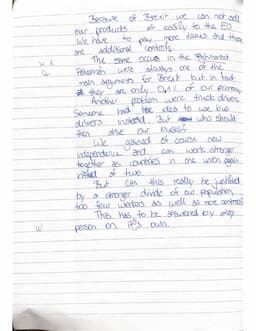 Because of Brexit we can not sell
our products as easily to the EU.
We have to pay more taxes and there
are additional controls.
The same occurs in the
Fisherman were always one of the
main arguments for Brexit but in fact
they are only 0,1% of our economy
Another problem were truck drivers.
Someone had the idea to use bus
drivers instead. But who should
then drive our busses?
We gained of course new
independence and can work stronger
together as countries in one union again
instead of two.
But can this really be justified
by a stronger divide of our population,
too few workers as well as more controls?
This has to be answered by every
person on it's own.